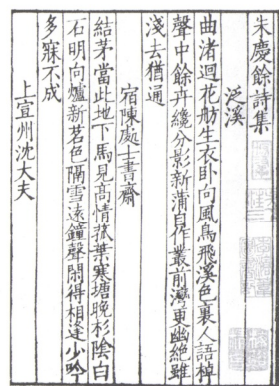 朱慶餘詩集
泛溪
曲渚迴花舫生衣臥向風鳥飛溪色裏人語棹
聲中餘卉纔分影新蒲自作叢前灣更幽絕雖
淺去猶通
宿陳處士書齋
結茅當此地下馬見高情菰葉寒塘晚杉陰白
石明向爐新茗色隔雪遠鐘聲閑得相逢少吟
多寐不成
上宣州沈大夫